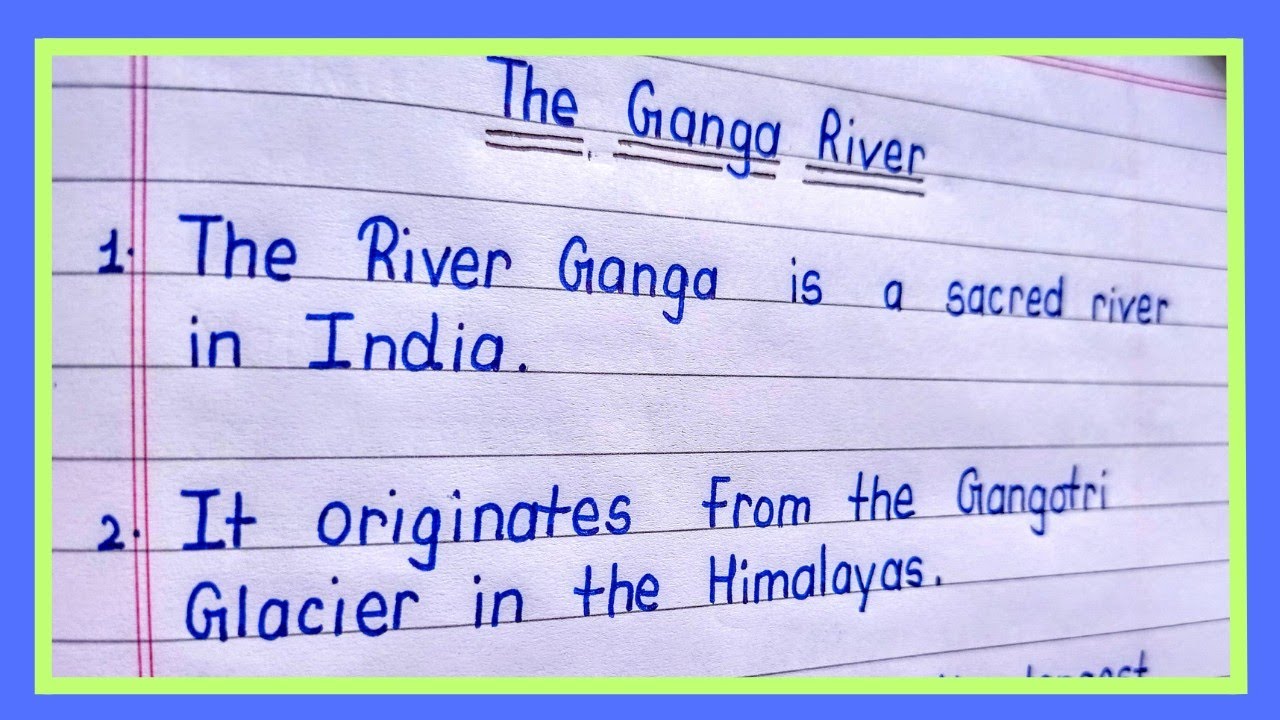 The Ganga River
1. The River Ganga is a sacred river
in India.
2. It originates from the Gangotri
Glacier in the Himalayas.
longest